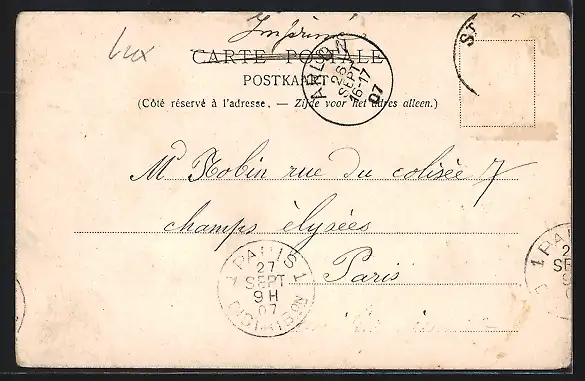 Imprimé
lux
CARTE POSTALE
POSTKAART
(Côté réservé à l'adresse. — Zijde voor het adres alleen.)
ARLO
26
SEPT
16-17
07
ST
Md Robin rue du colisée 7
champs èlysées
Paris
1 PARIS 1
27
SEPT
9H
07
DISTRIBON
1 PARI
2
SE
9